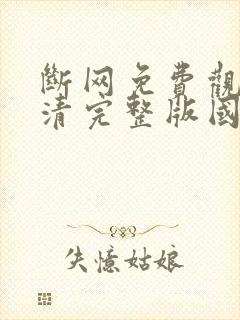 斷网免費觀
清完整版國
失憶姑娘